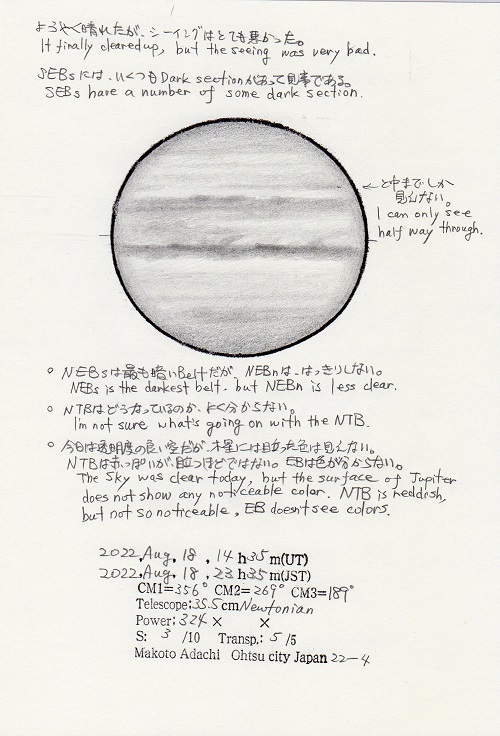 ようやく晴れたが、シーイングはとても悪かった。
It finally cleared up, but the seeing was very bad.
SEBsには、いくつもDark sectionがあって見事である。
SEBs have a number of some dark section.
← と中までしか
見えない。
I can only see
half way through.
○ NEBsは最も暗いBeltだが、NEBnは、はっきりしない。
NEBs is the darkest belt. but NEBn is less clear.
○ NTBはどうなっているのか、よく分からない。
I'm not sure what's going on with the NTB.
○ 今日は透明度の良い空だが、木星には目立った色は見えない。
NTBは赤っぽいが、目立つほどではない。EBは色が分からない。
The sky was clear today, but the surface of Jupiter
does not show any noticeable color. NTB is reddish,
but not so noticeable, EB doesn't see colors.
2022,Aug,18,14h35m(UT)
2022,Aug,18,23h35m(JST)
CM1=356° CM2=269° CM3=189°
Telescope:35.5cmNewtonian
Power:324× ×
S: 3 /10 Transp.: 5 /5
Makoto Adachi Ohtsu city Japan 22-4